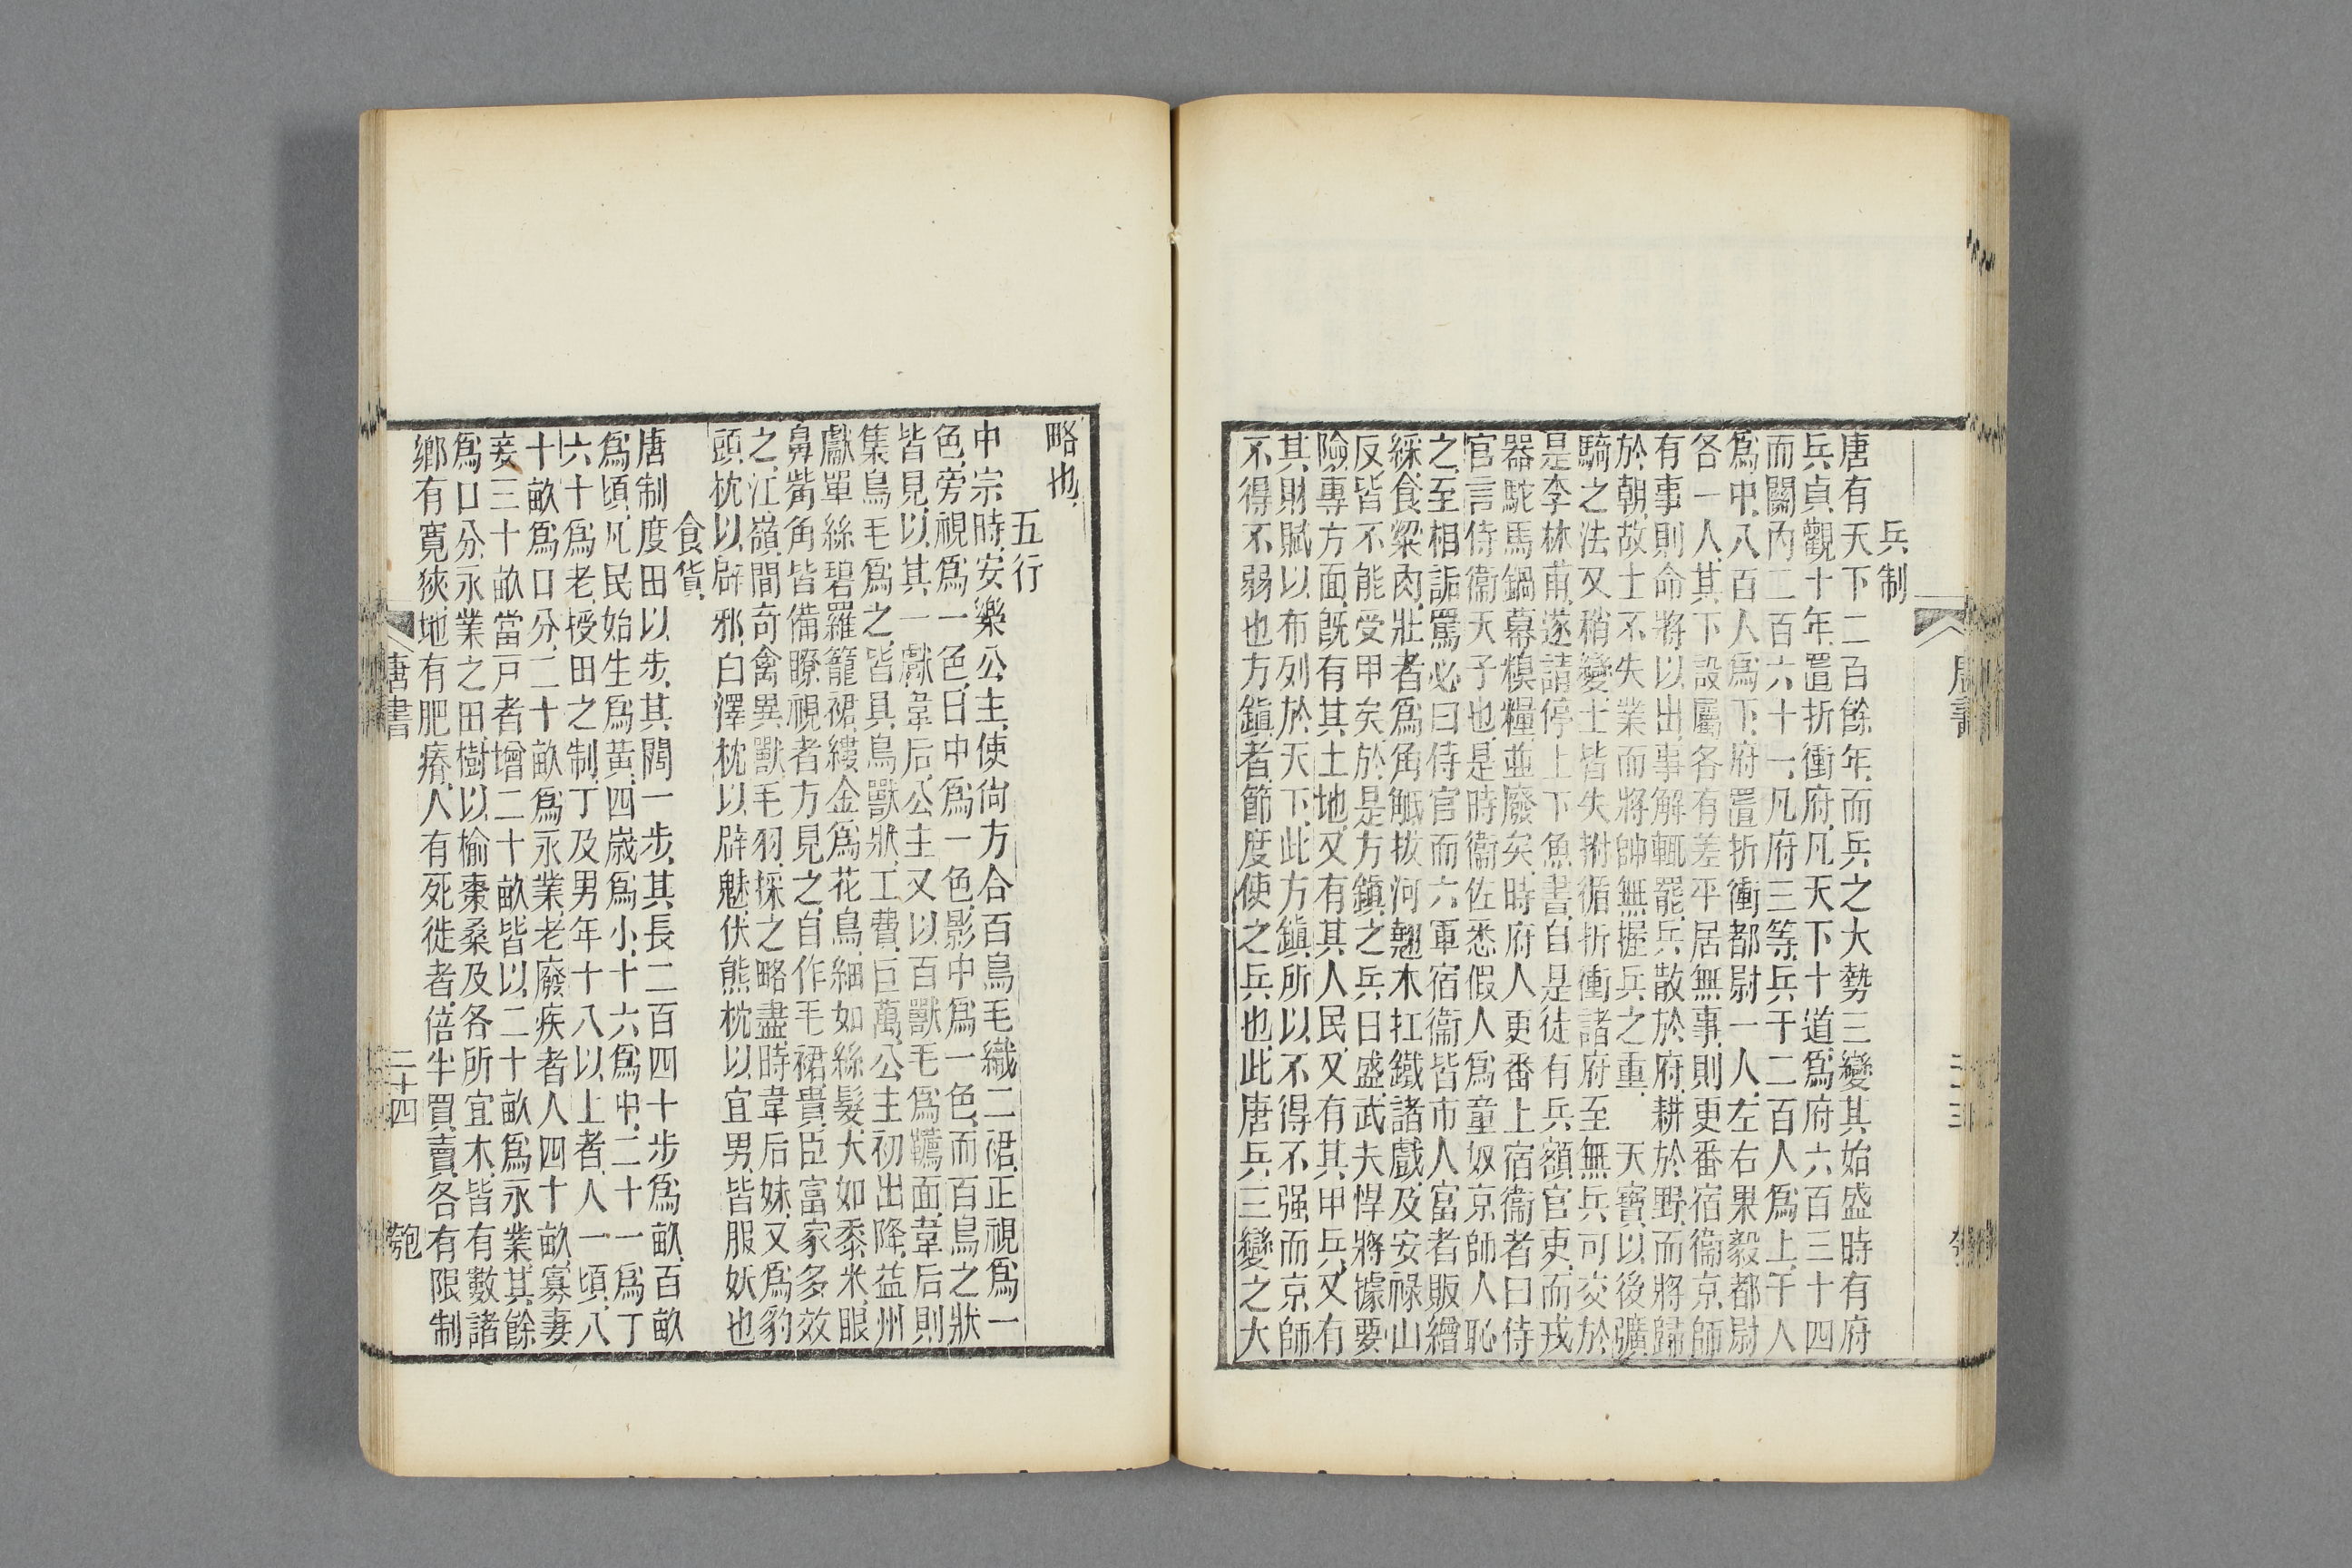 兵制
唐有天下二百餘年、而兵之大勢三變其始盛時有府
兵、貞觀十年、置折衝府、凡天下十道、爲府六百三十四
而關內二百六十一、凡府三等、兵千二百人爲上、千人
爲中、八百人爲下、府置折衝都尉一人、左右果毅都尉
各一人、其下設屬各有差平居無事、則更番宿衞京師
有事則命將以出、事解輒罷、兵散於府、耕於野、而將歸
於朝、故士不失業而將帥無握兵之重、天寶以後彍
騎之法又稍變士皆失拊循折衝諸府至無兵可交於
是李林甫、遂請停上下魚書、自是徒有兵額官吏、而戎
器駝馬鍋幕糗糧並廢矣、時府人更番上宿衞者曰侍
官言侍衞天子也、是時衞佐悉假人爲童奴京師人恥
之、至相詬罵必曰侍官而六軍宿衞皆市人富者販繒
綵、食粱肉、壯者爲角觝拔河翹木扛鐵諸戲、及安祿山
反、皆不能受甲矣、於是方鎭之兵日盛、武夫悍將據要
險、專方面、旣有其土地、又有其人民、又有其甲兵、又有
其財賦、以布列於天下、此方鎭所以不得不强、而京師
不得不弱也方鎭者、節度使之兵也、此唐兵三變之大
略也、
五行
中宗時、安樂公主、使尙方合百鳥毛織二裙、正視爲一
色、旁視爲一色、日中爲一色、影中爲一色、而百鳥之狀
皆見、以其一獻韋后、公主又以百獸毛爲韉面、韋后則
集鳥毛爲之、皆具鳥獸狀、工費巨萬、公主初出降、益州
獻單絲碧羅籠裙、縷金爲花鳥、細如絲髮、大如黍米、眼
鼻觜角皆備瞭視者方見之、自作毛裙、貴臣富家多效
之、江嶺間奇禽異獸毛羽、採之略盡、時韋后妹、又爲豹
頭枕以辟邪、白澤枕以辟魅、伏熊枕以宜男、皆服妖也
食貨
唐制度田以步、其闊一步、其長二百四十步爲畝、百畝
爲頃、凡民始生爲黃、四歲爲小、十六爲中、二十一爲丁
六十爲老、授田之制、丁及男年十八以上者、人一頃、八
十畝爲口分、二十畝爲永業、老廢疾者人四十畝、寡妻
妾三十畝當戸者增二十畝皆以二十畝爲永業、其餘
爲口分、永業之田、樹以榆棗桑及各所宜木、皆有數諸
鄉有寬狹、地有肥瘠、人有死徙者、倍半買賣各有限制
唐書
二十四